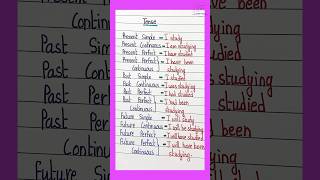 Tense
Present Simple = I study
Present Continuous = I am studying
Present Perfect = I have studied
Present Perfect } = I have been
Continuous studying
Past Simple = I studied
Past Continuous = I was studying
Past Perfect = I had studied
Past Perfect } = I had been
Continuous studying
Future Simple = I will study
Future Continuous = I will be studying
Future Perfect = I will have studied
Future Perfect } = I will have been
Continuous studying.